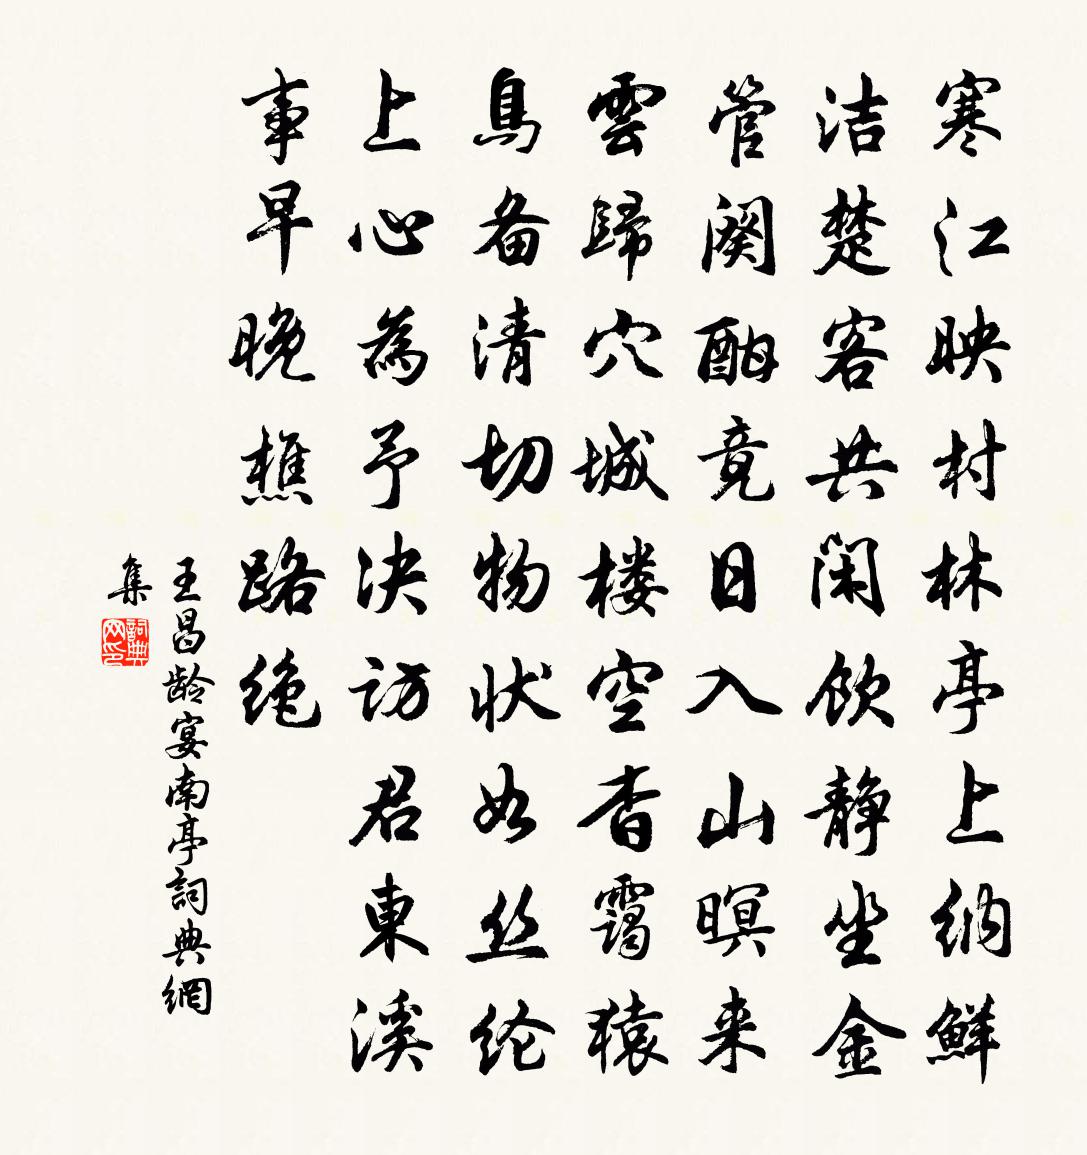 寒江映村林亭上纳鮮
洁楚客共闲飲静坐金
管阕酣竟日入山暝来
雲歸穴城楼空杳靄猿
鳥备清切物状如丝纶
上心為予决访君東溪
事早晚樵路绝
王昌龄宴南亭詞典網
集
詞典网印